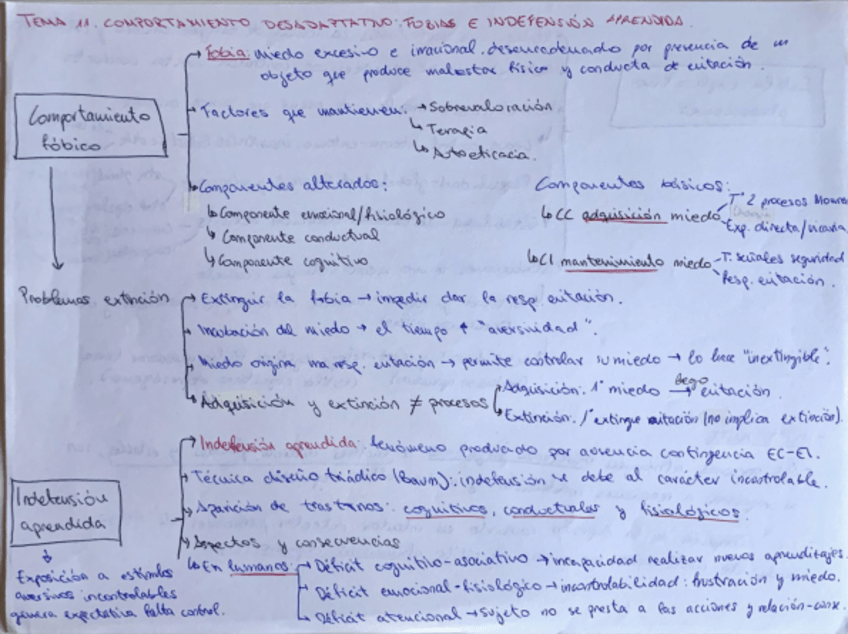 TEMA 11. COMPORTAMIENTO DESADAPTATIVO: FOBIAS E INDEFENSIÓN APRENDIDA.
Fobia: miedo excesivo e irracional. desencadenado por presencia de un
objeto que produce malestar físico y conducta de evitación.
Comportamiento
fóbico
Factores que mantienen: → Sobrevaloración
↳ Terapia
↳ Autoeficacia.
Componentes alterados:
↳ Componente emocional/fisiológico
↳ Componente conductual
↳ Componente cognitivo
Componentes básicos:
↳ CC adquisición miedo
Tª 2 procesos Mowrer
Exp. directa/vicaria
↳ CI mantenimiento miedo
T. señales seguridad
Resp. evitación.
Problemas extinción
Extinguir la fobia → impedir dar la resp. evitación.
Incubación del miedo → el tiempo ↑ "aversividad".
Miedo origina una resp. evitación → permite controlar su miedo → lo hace "inextinguible".
Adquisición y extinción ≠ procesos
Adquisición: 1º miedo luego → evitación.
Extinción: 1º extingue evitación (no implica extinción).
Indefensión
aprendida
Indefensión aprendida: fenómeno producido por ausencia contingencia EC-EI.
Técnica diseño triádico (Baum): indefensión se debe al carácter incontrolable.
Aparición de trastornos: cognitivos, conductuales y fisiológicos.
Aspectos y consecuencias
↳ En humanos:
Déficit cognitivo-asociativo → incapacidad realizar nuevos aprendizajes.
Déficit emocional-fisiológico → incontrolabilidad: frustración y miedo.
Déficit atencional → sujeto no se presta a las acciones y relación-cons.
Exposición a estímulos
aversivos incontrolables
genera expectativa falta control.